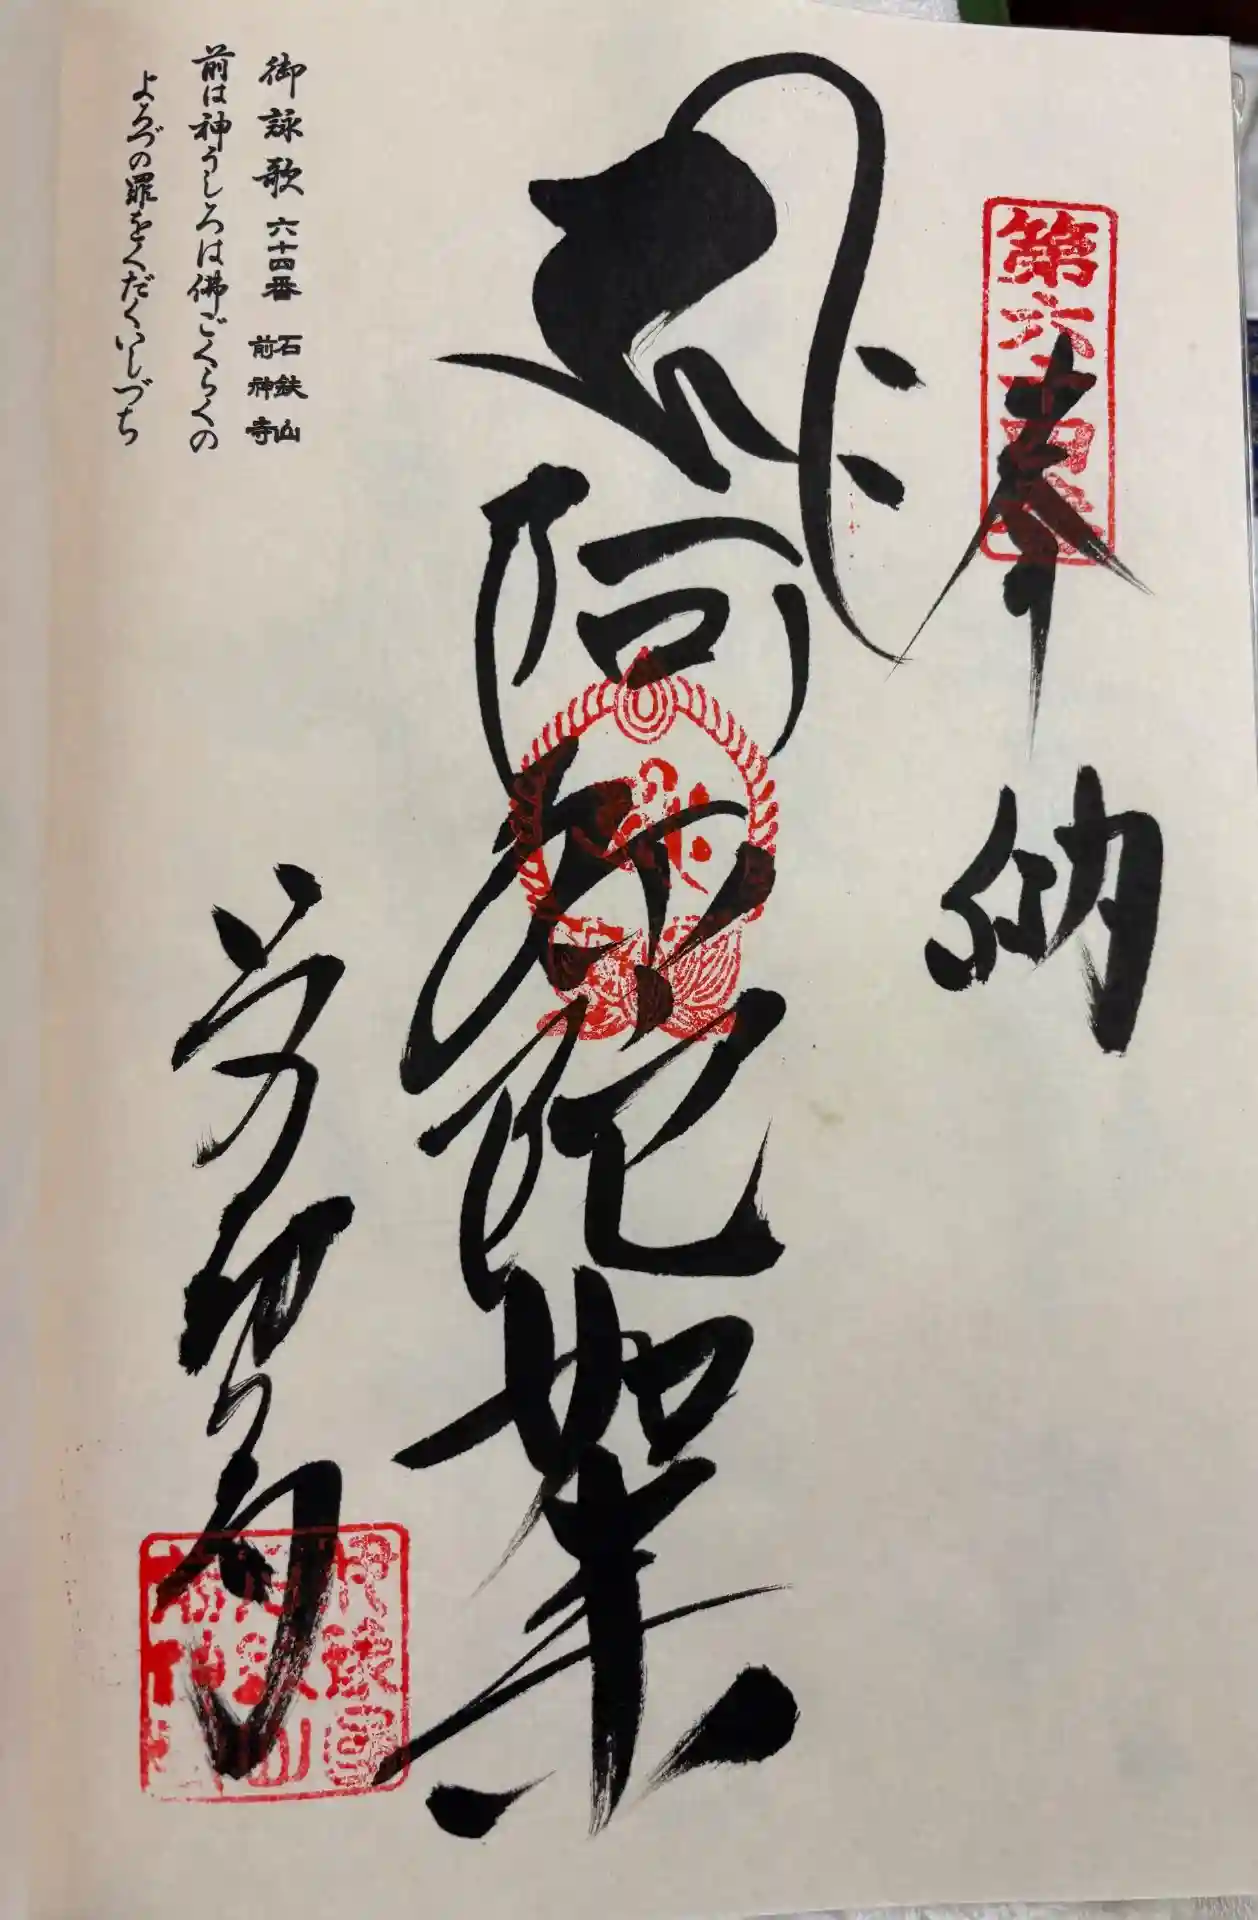 第六十四番
奉納
阿弥陀如来
前神寺
伊豫国
石鉄山
前神寺
御詠歌 六十四番 石鉄山 前神寺
前は神うしろは佛ごくらくの
よろづの罪をくだくいしづち